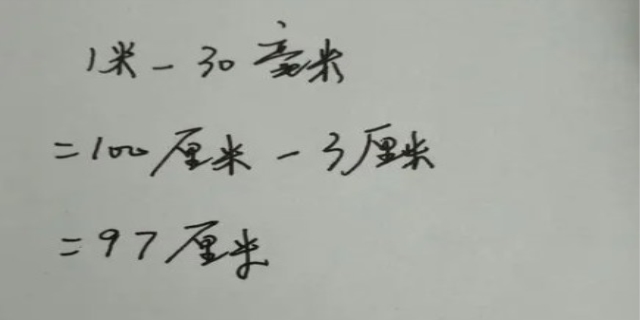 1米-30毫米
=100厘米-3厘米
=97厘米